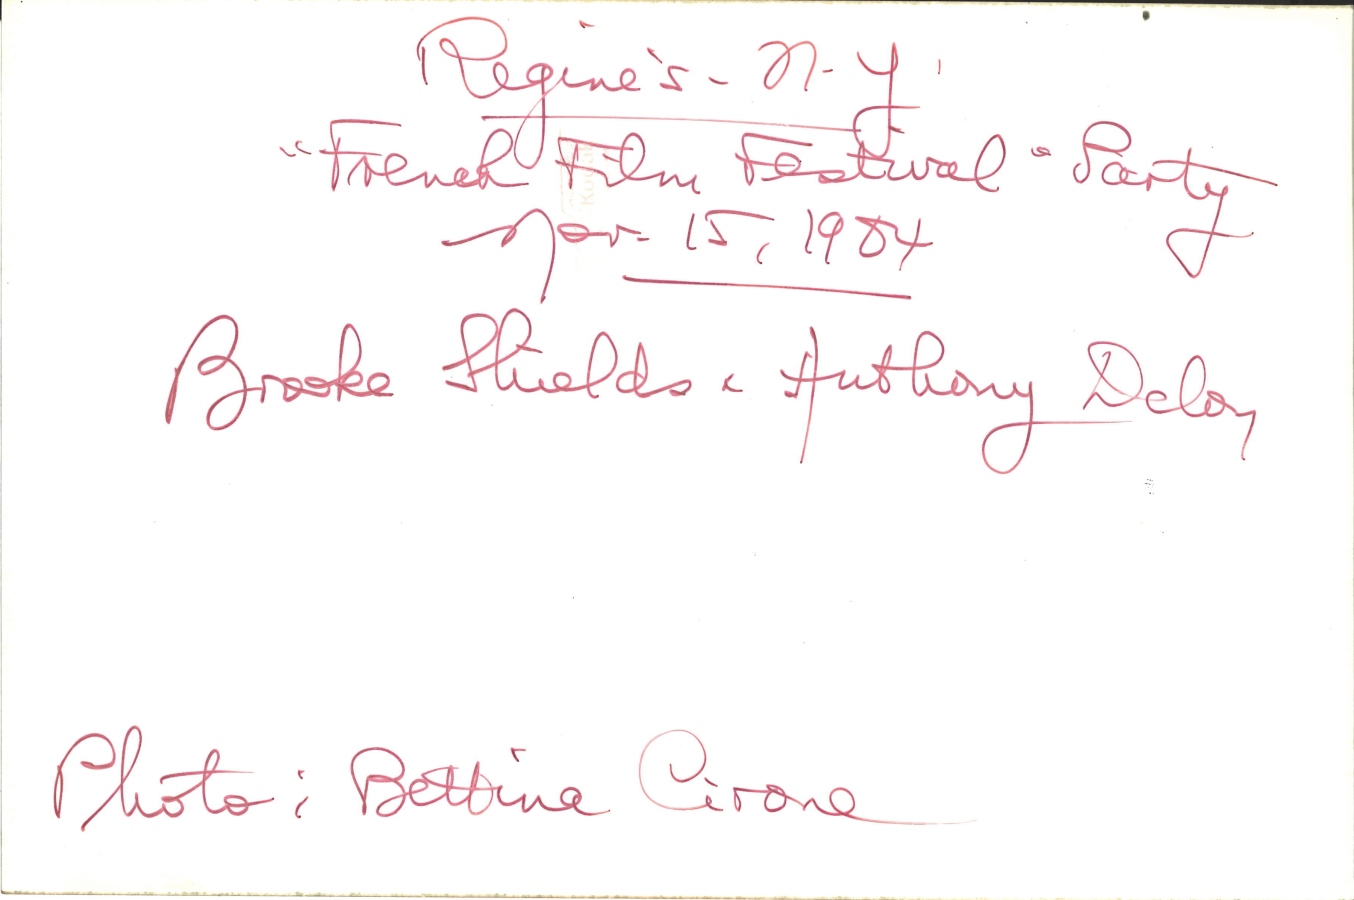 Regine's - N.Y.
"French Film Festival" Party
Nov. 15, 1984
Brooke Shields & Anthony Delon
Photo: Bettina Cirone